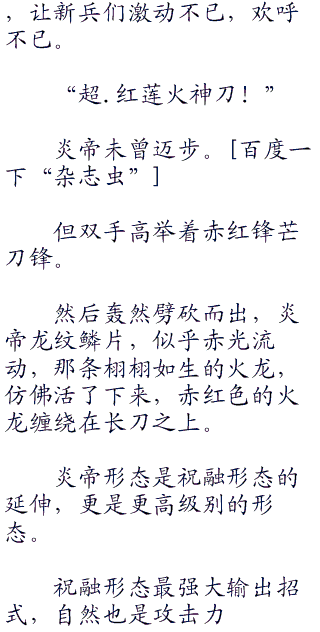 ，让新兵们激动不已，欢呼
不已。
“超.红莲火神刀！”
炎帝未曾迈步。[百度一
下“杂志虫”]
但双手高举着赤红锋芒
刀锋。
然后轰然劈砍而出，炎
帝龙纹鳞片，似乎赤光流
动，那条栩栩如生的火龙，
仿佛活了下来，赤红色的火
龙缠绕在长刀之上。
炎帝形态是祝融形态的
延伸，更是更高级别的形
态。
祝融形态最强大输出招
式，自然也是攻击力